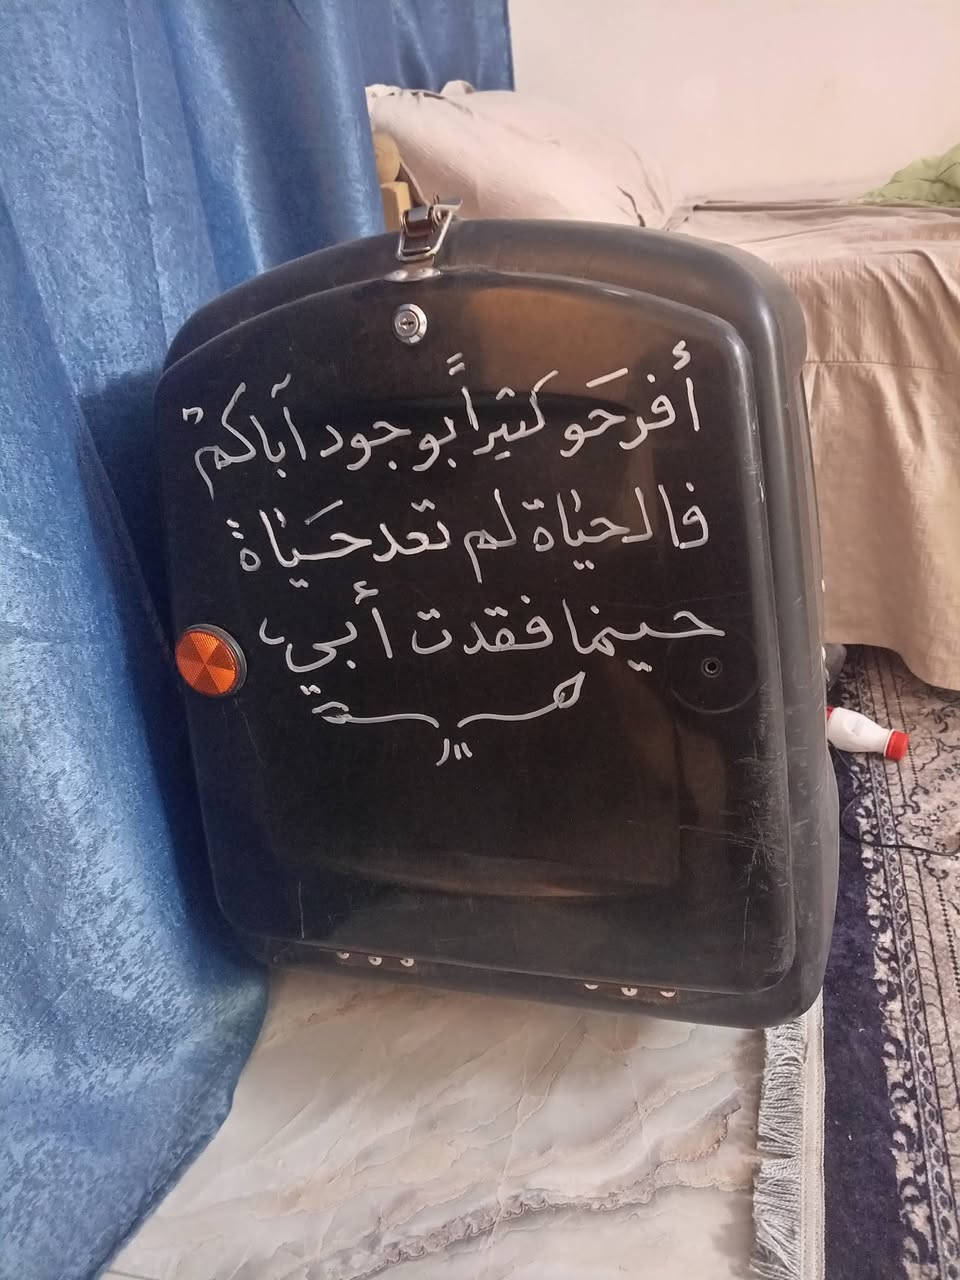 أفرحَو كثيراً بوجود آباكم
فالحياة لم تعد حَياة
حينما فقدت أبي